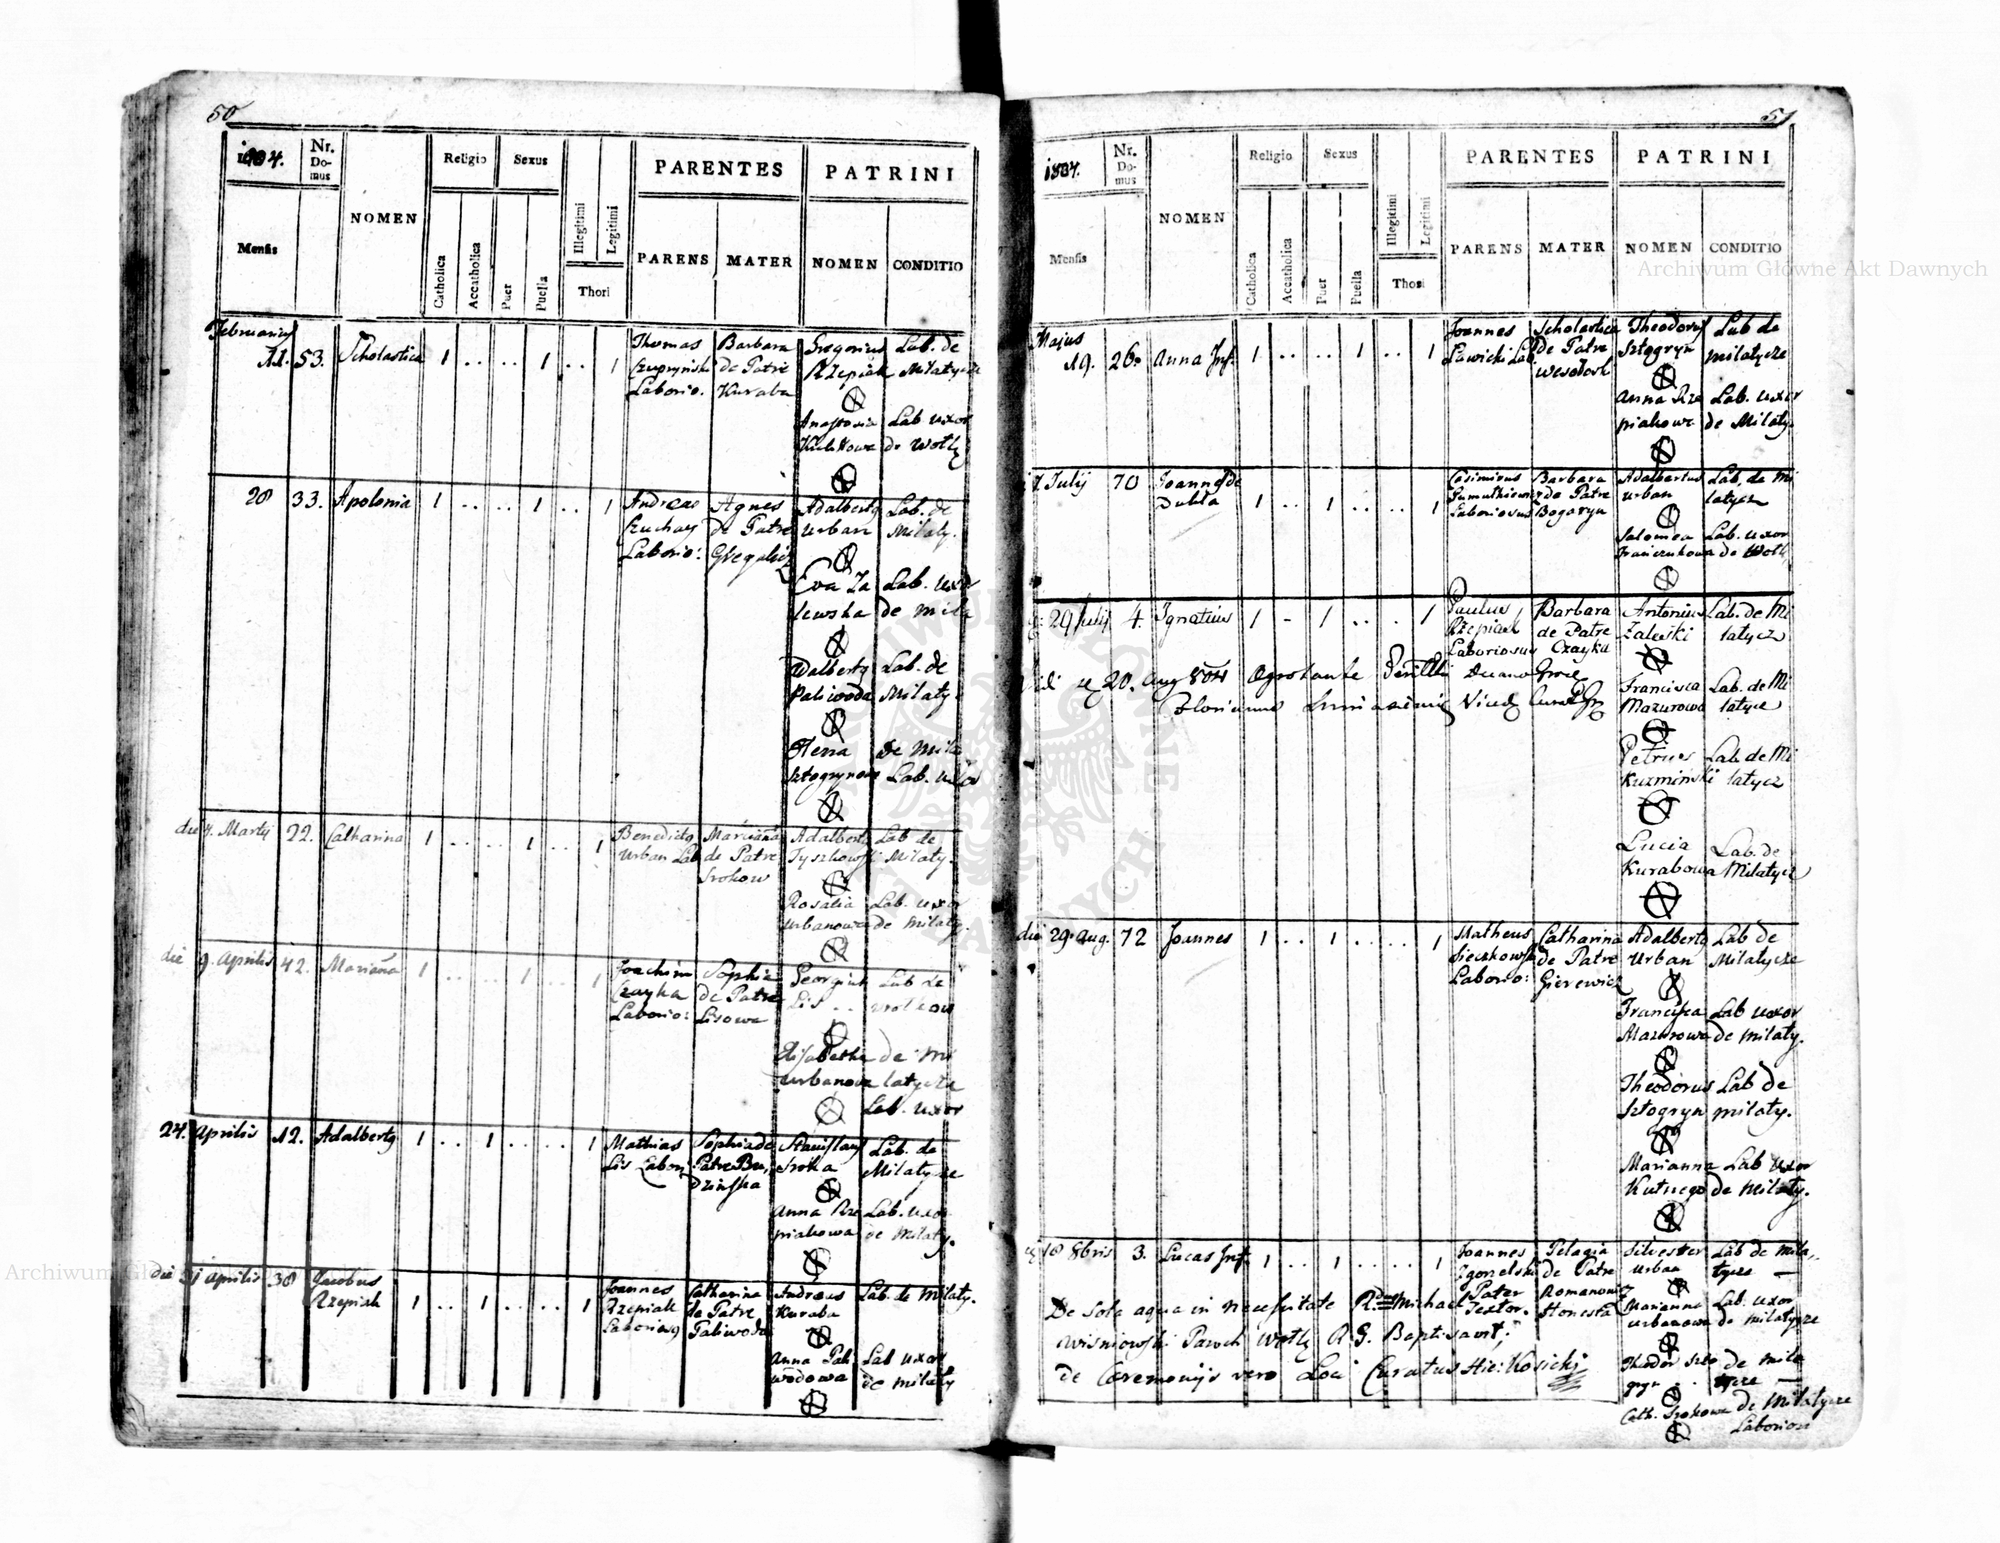 50
1804.
Nr. Domus
NOMEN
Religio
Sexus
PARENTES
PATRINI
Mensis
Catholica
Accatholica
Puer
Puella
Illegitimi
Legitimi
Thori
PARENS
MATER
NOMEN
CONDITIO
Februarius
11. 53. Scholastica 1 .. .. 1 .. 1 Thomas Barbara Gregorius Lab. de
de Patre Rzepiak Milatycze
Laborio. Kuraba
Anastasia Lab uxor
de Wotly
28 33. Apolonia 1 .. .. 1 .. 1 Andreas Agnes Adalberty Lab. de
Czuchay de Patre Urban Milaty.
Laborio:
Eva Za Lab. uxo
lewska de Mila
Walberty Lab. de
Paliwoda Milaty.
Hena de Mila
Sztogrynowa Lab. uxor
die 4. Martij 22. Catharina 1 .. .. 1 .. 1 Benedicty Marianna Adalberty Lab de
Urban Lab de Patre Tyszkowski Milaty.
Srokow
Rosalia Lab. uxor
Urbanowa de Milaty.
die 9. Aprilis 42. Marianna 1 .. .. 1 .. 1 Joachim Sophia Georgius Lab de
Czayka de Patre Lis ..
Laborio: Lisowa
Elisabetha de Mi
Urbanowa latycze
Lab. uxor
24. Aprilis 12. Adalberty 1 .. 1 .. .. 1 Mathias Sophia de Stanislaus Lab. de
Lis Labori Patre Bu, Sroka Milatycze
dzinska
Anna Rze Lab. uxor
piakowa de Milaty.
die 31 Aprilis 38 Jacobus Joannes Catharina Andreas Lab. de Milaty.
Rzepiak 1 .. 1 .. .. 1 Rzepiak de Patre Kuraba
Laboriosy Paliwoda
Anna Pali Lab uxor
wodowa de Milaty
51
1804.
Nr. Domus
NOMEN
Religio
Sexus
PARENTES
PATRINI
Mensis
Catholica
Accatholica
Puer
Puella
Illegitimi
Legitimi
Thori
PARENS
MATER
NOMEN
CONDITIO
Majus Joannes Scholastica Theodorus Lab de
19. 26. Anna Inf. 1 .. .. 1 .. 1 Sawicki Lab. de Patre Sztogryn Milatycze
Anna Rze Lab. uxor
piakowa de Milaty.
7. Julij 70 Joannes de Casimirus Barbara Adalbertus Lab. de Mi
Dukla 1 .. 1 .. .. 1 de Patre Urban latycz
Laboriosus Bogaryn
Salomea Lab. uxor
de Wotl
29 Julij 4. Ignatius 1 - 1 .. . 1 Paulus Barbara Antonius Lab. de Mi
Rzepiak de Patre Zaleski latycz
Laboriosus Czayka
20. Aug 804
Francisca Lab. de Mi
Mazurowa latycz
Petrus Lab. de Mi
Kuzminski latycz
Lucia Lab. de
Kurabowa Milatycz
die 29. Aug. 72 Joannes 1 .. 1 .. .. 1 Matheus Catharina Adalberty Lab de
Sieczkowski de Patre Urban Milatycze
Laborio: Gierewicz
Francisca Lab uxor
Mazurowa de Milaty.
Theodorus Lab de
Sztogryn Milaty.
Marianna Lab uxor
Kutnego de Milaty.
18 8bris 3. Lucas Inf. 1 .. 1 .. .. 1 Joannes Pelagia Silvester Lab de Mila,,
de Patre Urban tycze —
Pater Romanowicz
Textor. Honesta
Marianna Lab. uxor
Urbanowa de Milatycze
De Sola aqua in necessitate Rd Michael
Wisniowski Paroch Wotly R. G. Baptisavit;
de Ceremonijs vero Loci Curatus Hie: Kosicki
Theodor Szto de Mila
gryn .. tycze —
Cath. Srokowa de Milatycze
Laborios
Archiwum Główne Akt Dawnych